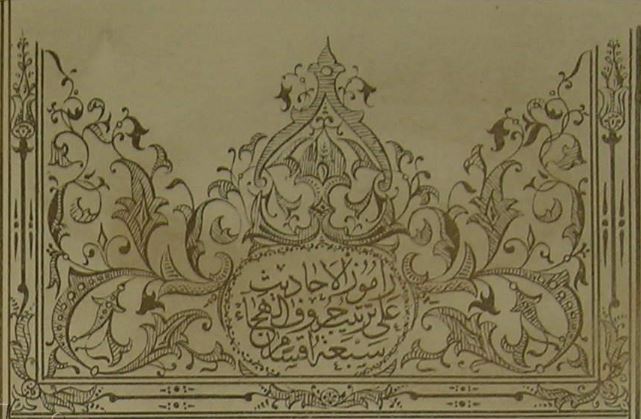 راموز الاحاديث
على ترتيب حروف الهجاء
سبعة اقسام